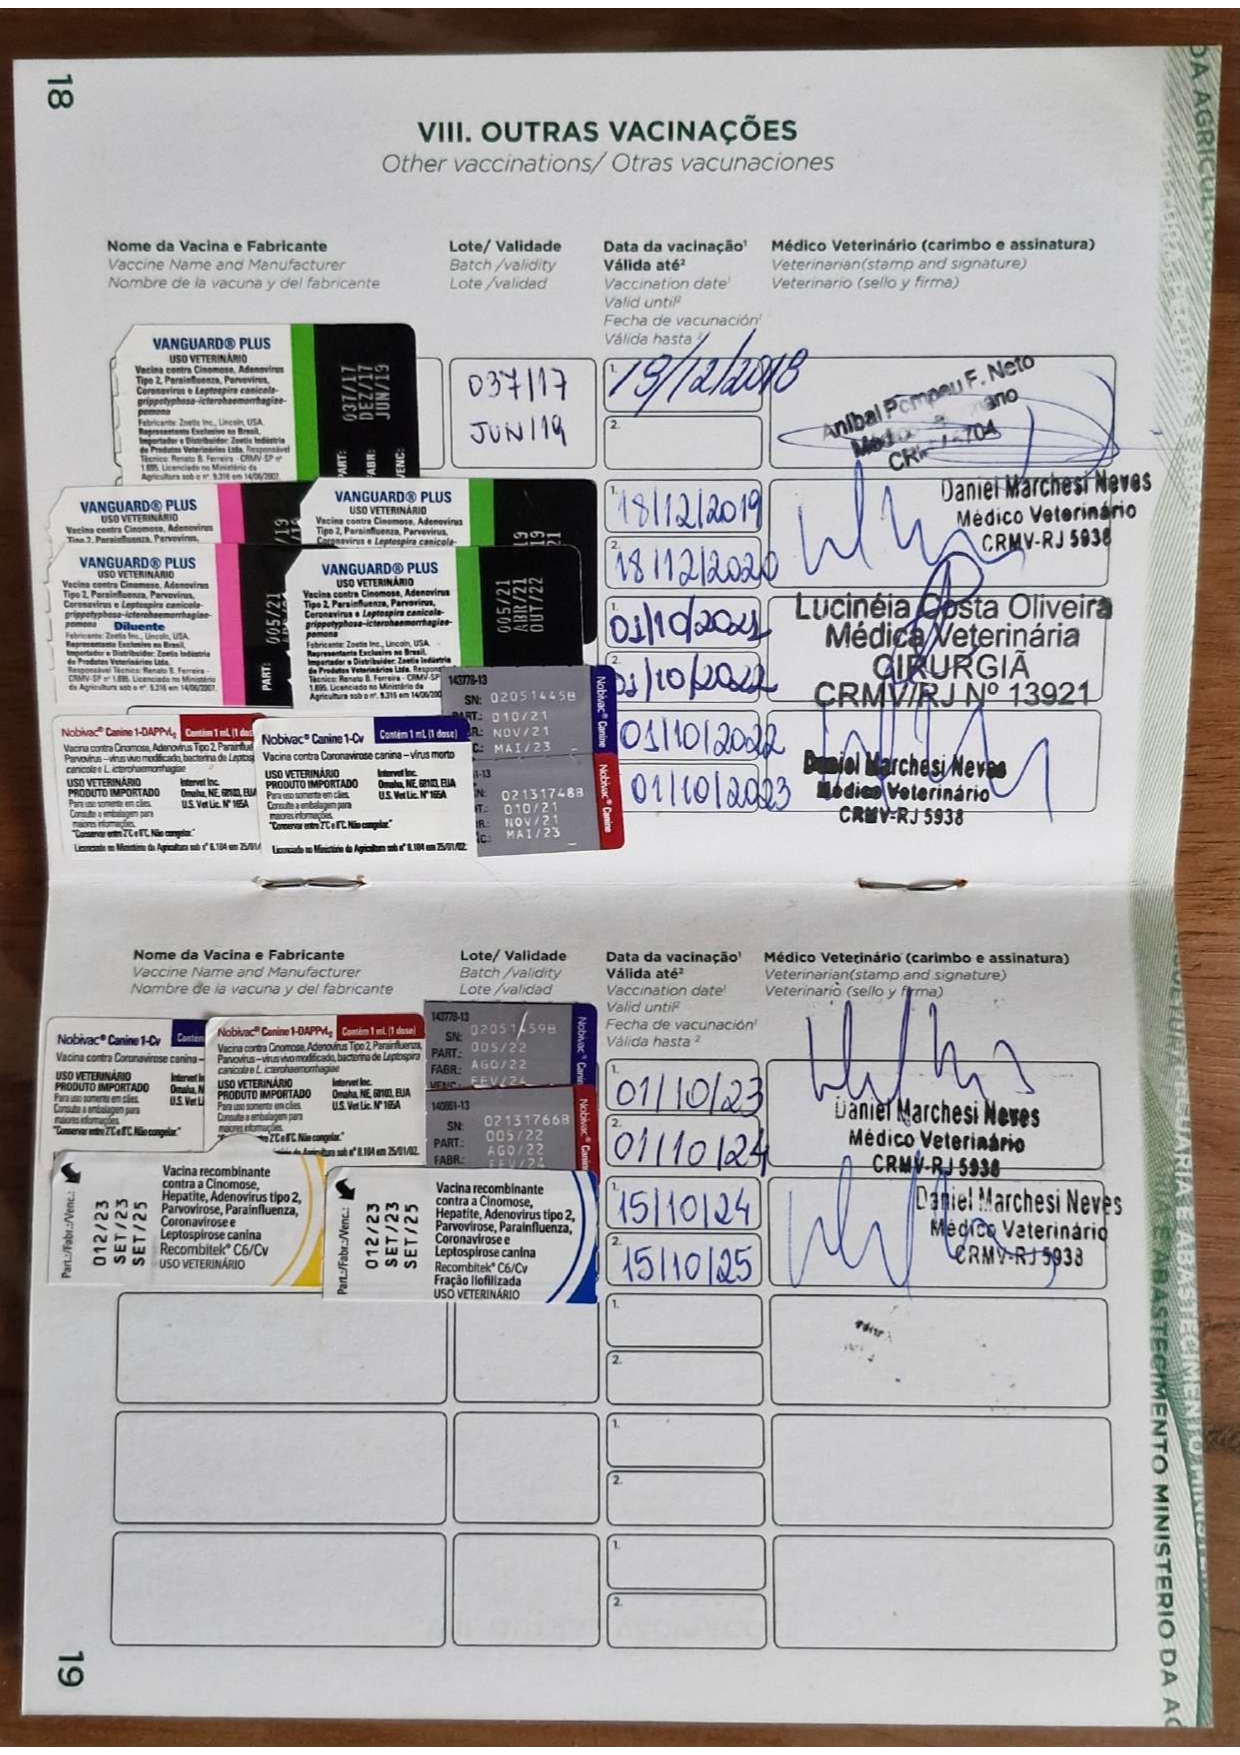 18
VIII. OUTRAS VACINAÇÕES
Other vaccinations/ Otras vacunaciones
Nome da Vacina e Fabricante
Vaccine Name and Manufacturer
Nombre de la vacuna y del fabricante
Lote/ Validade
Batch /validity
Lote /validad
Data da vacinação¹
Válida até²
Vaccination date¹
Valid until²
Fecha de vacunación¹
Válida hasta ²
Médico Veterinário (carimbo e assinatura)
Veterinarian(stamp and signature)
Veterinario (sello y firma)
VANGUARD® PLUS
USO VETERINÁRIO
Vacina contra Cinomose, Adenovirus
Tipo 2, Parainfluenza, Parvovirus,
Coronavirus e Leptospira canicola-
grippotyphosa-icterohaemorrhagiae-
pomona
Fabricante: Zoetis Inc., Lincoln, USA.
Representante Exclusivo no Brasil,
Importador e Distribuidor: Zoetis Indústria
de Produtos Veterinários Ltda. Responsável
Técnico: Renato B. Ferreira - CRMV-SP nº
1.695. Licenciado no Ministério da
Agricultura sob o nº. 9.316 em 14/06/2007.
PART: 037/17
FABR: DEZ/17
VENC: JUN/19
037/17
JUN/19
1. 19/12/2018
2.
Anibal Pompeu F. Neto
VANGUARD® PLUS
USO VETERINÁRIO
Vacina contra Cinomose, Adenovirus
Tipo 2, Parainfluenza, Parvovirus,
VANGUARD® PLUS
USO VETERINÁRIO
Vacina contra Cinomose, Adenovirus
Tipo 2, Parainfluenza, Parvovirus,
Coronavirus e Leptospira canicola-
1. 18/12/2019
2. 18/12/2020
Daniel Marchesi Neves
Médico Veterinário
CRMV-RJ 5938
VANGUARD® PLUS
USO VETERINÁRIO
Vacina contra Cinomose, Adenovirus
Tipo 2, Parainfluenza, Parvovirus,
Coronavirus e Leptospira canicola-
grippotyphosa-icterohaemorrhagiae-
pomona Diluente
Fabricante: Zoetis Inc., Lincoln, USA.
Representante Exclusivo no Brasil,
Importador e Distribuidor: Zoetis Indústria
de Produtos Veterinários Ltda.
Responsável Técnico: Renato B. Ferreira -
CRMV-SP nº 1.695. Licenciado no Ministério
da Agricultura sob o nº. 9.316 em 14/06/2007.
PART: 005/21
VANGUARD® PLUS
USO VETERINÁRIO
Vacina contra Cinomose, Adenovirus
Tipo 2, Parainfluenza, Parvovirus,
Coronavirus e Leptospira canicola-
grippotyphosa-icterohaemorrhagiae-
pomona
Fabricante: Zoetis Inc., Lincoln, USA.
Representante Exclusivo no Brasil,
Importador e Distribuidor: Zoetis Indústria
de Produtos Veterinários Ltda. Respon
Técnico: Renato B. Ferreira - CRMV-SP
1.695. Licenciado no Ministério da
Agricultura sob o nº. 9.316 em 14/06/200
005/21
ABR/21
OUT/22
1. 01/10/2021
2. 01/10/2022
Lucinéia Costa Oliveira
Médica Veterinária
CIRURGIÃ
CRMV/RJ Nº 13921
Nobivac® Canine 1-DAPPvL2 Contém 1 mL (1 dos
Vacina contra Cinomose, Adenovirus Tipo 2, Parainflue
Parvovirus – vírus vivo modificado, bacterina de Leptos
canicola e L. icterohaemorrhagiae
USO VETERINÁRIO
PRODUTO IMPORTADO
Para uso somente em cães.
Consulte a embalagem para
maiores informações.
"Conservar entre 2°C e 8°C. Não congelar."
Intervet Inc.
Omaha, NE, 68103, EUA
U.S. Vet Lic. Nº 165A
Licenciado no Ministério da Agricultura sob nº 8.104 em 25/01/
Nobivac® Canine 1-Cv Contém 1 mL (1 dose)
Vacina contra Coronavirose canina – vírus morto
USO VETERINÁRIO
PRODUTO IMPORTADO
Para uso somente em cães.
Consulte a embalagem para
maiores informações.
"Conservar entre 2°C e 8°C. Não congelar."
Intervet Inc.
Omaha, NE, 68103, EUA
U.S. Vet Lic. Nº 165A
Licenciado no Ministério da Agricultura sob nº 8.104 em 25/01/02.
143778-13
SN: 02051445B
PART.: 010/21
R.: NOV/21
C.: MAI/23
Nobivac® Canine
1-13
N: 02131748B
T.: 010/21
R.: NOV/21
C.: MAI/23
Nobivac® Canine
01/10/2022
01/10/2023
Daniel Marchesi Neves
Médico Veterinário
CRMV-RJ 5938
Nome da Vacina e Fabricante
Vaccine Name and Manufacturer
Nombre de la vacuna y del fabricante
Lote/ Validade
Batch /validity
Lote /validad
Data da vacinação¹
Válida até²
Vaccination date¹
Valid until²
Fecha de vacunación¹
Válida hasta ²
Médico Veterinário (carimbo e assinatura)
Veterinarian(stamp and signature)
Veterinario (sello y firma)
Nobivac® Canine 1-Cv Conten
Vacina contra Coronavirose canina –
USO VETERINÁRIO
PRODUTO IMPORTADO
Para uso somente em cães.
Consulte a embalagem para
maiores informações.
"Conservar entre 2°C e 8°C. Não congelar."
Intervet In
Omaha, N
U.S. Vet Li
Nobivac® Canine 1-DAPPvL2 Contém 1 mL (1 dose)
Vacina contra Cinomose, Adenovirus Tipo 2, Parainfluenza,
Parvovirus – vírus vivo modificado, bacterina de Leptospira
canicola e L. icterohaemorrhagiae
USO VETERINÁRIO
PRODUTO IMPORTADO
Para uso somente em cães.
Consulte a embalagem para
maiores informações.
e 2°C e 8°C. Não congelar."
Intervet Inc.
Omaha, NE, 68103, EUA
U.S. Vet Lic. Nº 165A
Agricultura sob nº 8.104 em 25/01/02.
143778-13
SN: 02051459B
PART.: 005/22
FABR.: AGO/22
VENC.: FEV/24
Nobivac® Canin
140861-13
SN: 02131766B
PART.: 005/22
FABR.: AGO/22
FEV/24
Nobivac® Canine
1. 01/10/23
2. 01/10/24
Daniel Marchesi Neves
Médico Veterinário
CRMV-RJ 5938
Part.:/Fabr.:/Venc.:
012/23
SET/23
SET/25
Vacina recombinante
contra a Cinomose,
Hepatite, Adenovirus tipo 2,
Parvovirose, Parainfluenza,
Coronavirose e
Leptospirose canina
Recombitek® C6/Cv
USO VETERINÁRIO
Part.:/Fabr.:/Venc.:
012/23
SET/23
SET/25
Vacina recombinante
contra a Cinomose,
Hepatite, Adenovirus tipo 2,
Parvovirose, Parainfluenza,
Coronavirose e
Leptospirose canina
Recombitek® C6/Cv
Fração liofilizada
USO VETERINÁRIO
1. 15/10/24
2. 15/10/25
Daniel Marchesi Neves
Médico Veterinário
CRMV-RJ 5938
1.
2.
1.
2.
1.
2.
19
E ABASTECIMENTO MINISTERIO DA AG